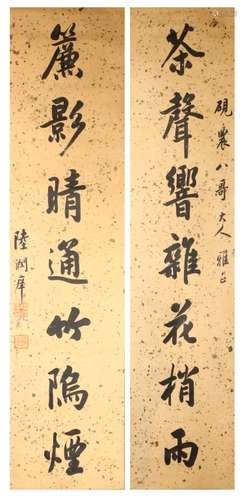 茶聲響雜花梢雨
硯農八哥大人雅正
簾影晴通竹隝煙
陸潤庠